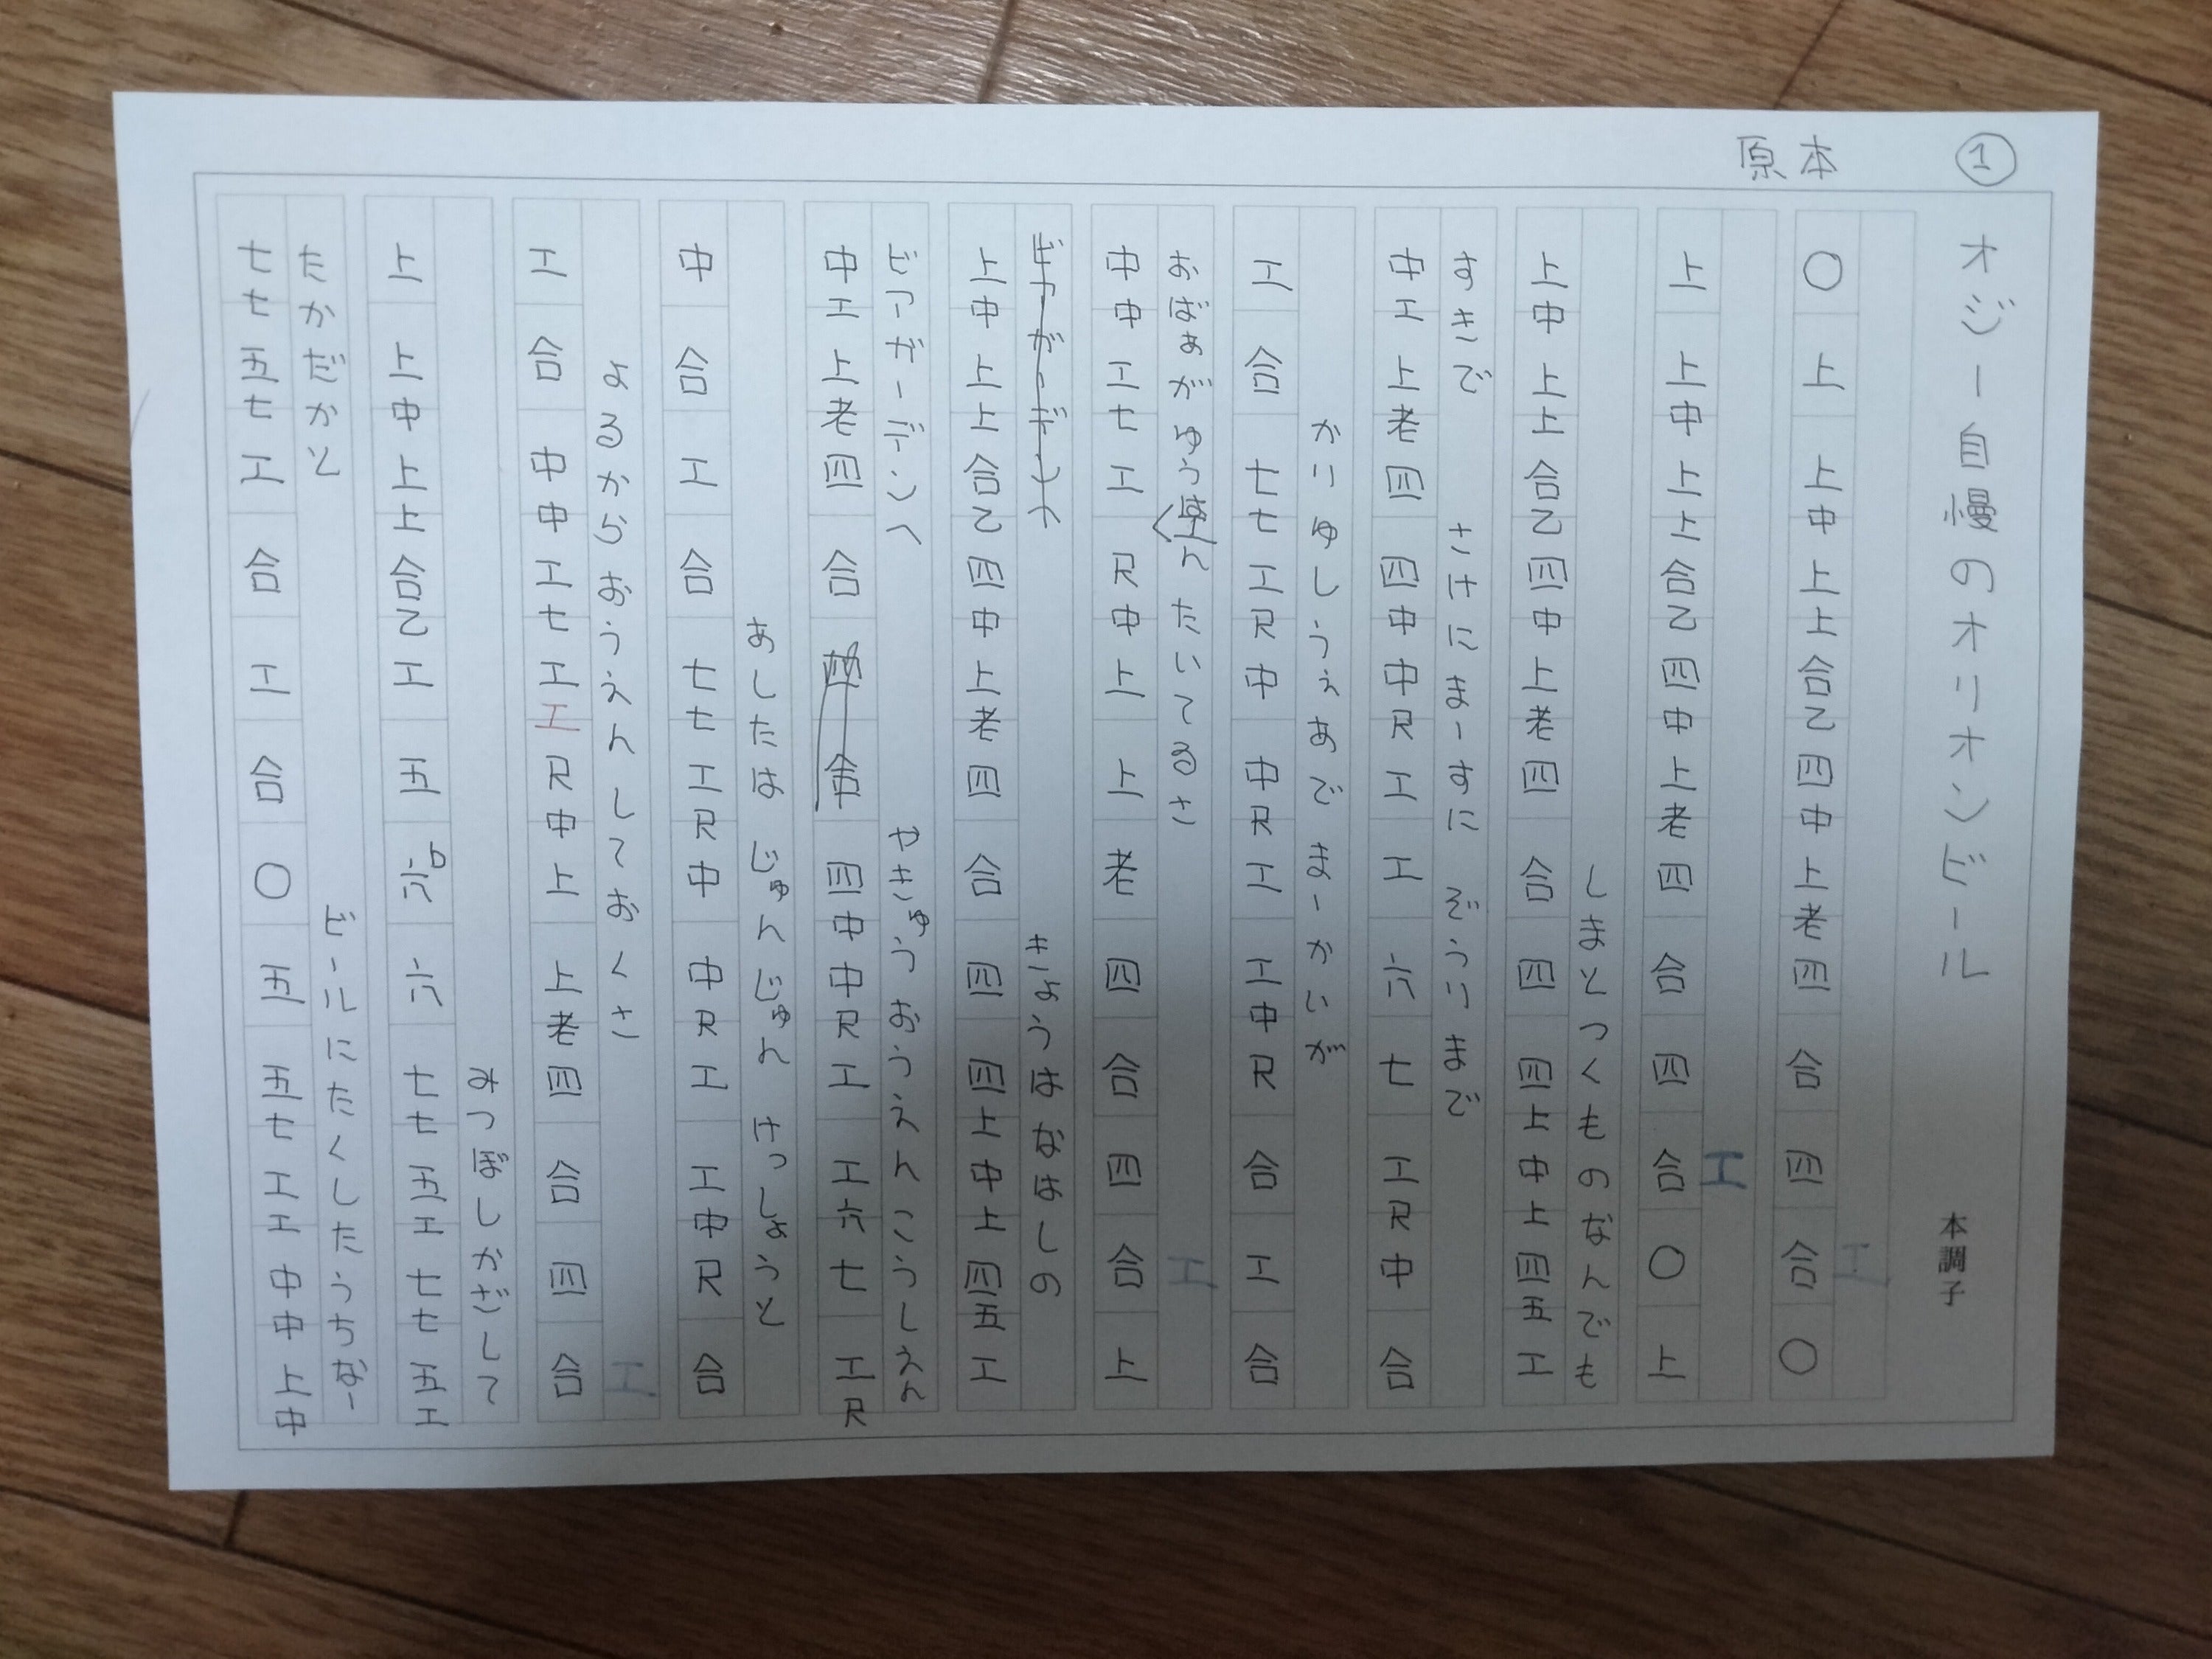 ① 原本
オジー自慢のオリオンビール 本調子
〇上上中上上合乙四中上老四合四合〇
工
上上中上上合乙四中上老四合四合〇上
工
上中上上合乙四中上老四合四四上中上四五工
しまとつくものなんでも
中工上老四四中中尺工工六七工尺中合
すきで さけにまーすに ぞうりまで
工合七七工尺中中尺工工中尺合工合
かりゆしうぇあでまーかいが
中中工七工尺中上上老四合四合上
おばあがゆうたいてるさ
工
上中上上合乙四中上老四合四四上中上四五工
きょうははなしの
中工上老四合四中中尺工工六七工尺
びっぎーびく
やきゅうおうえんこうしえん
中合工合七七工尺中中尺工工中尺合
あしたはじゅんじゅんけっしょうと
工合中中工七工工尺中上上老四合四合
よるからおうえんしておくさ
工
上上中上上合乙工五六七七五工七七五工
みつぼしかざして
七七五七工合工合〇五五七工工中中上中
たかだかと
ビールにたくしたうちなー